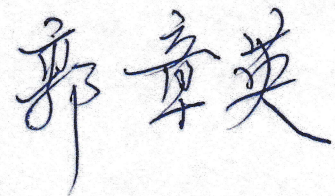 郭章英